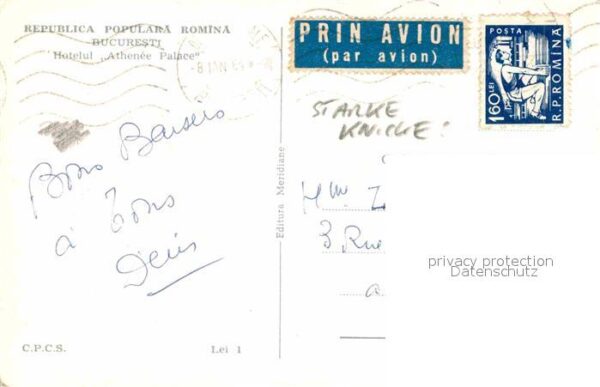 REPUBLICA POPULARĂ ROMÎNĂ
BUCUREȘTI
Hotelul „Athénée Palace”
PRIN AVION
(par avion)
POSTA
1 60 LEI
R.P.ROMINA
STARKE
KNICKE!
Bons Baisers
à tous
Denis
Editura Meridiane
3 Rue
privacy protection
Datenschutz
C.P.C.S.
Lei 1